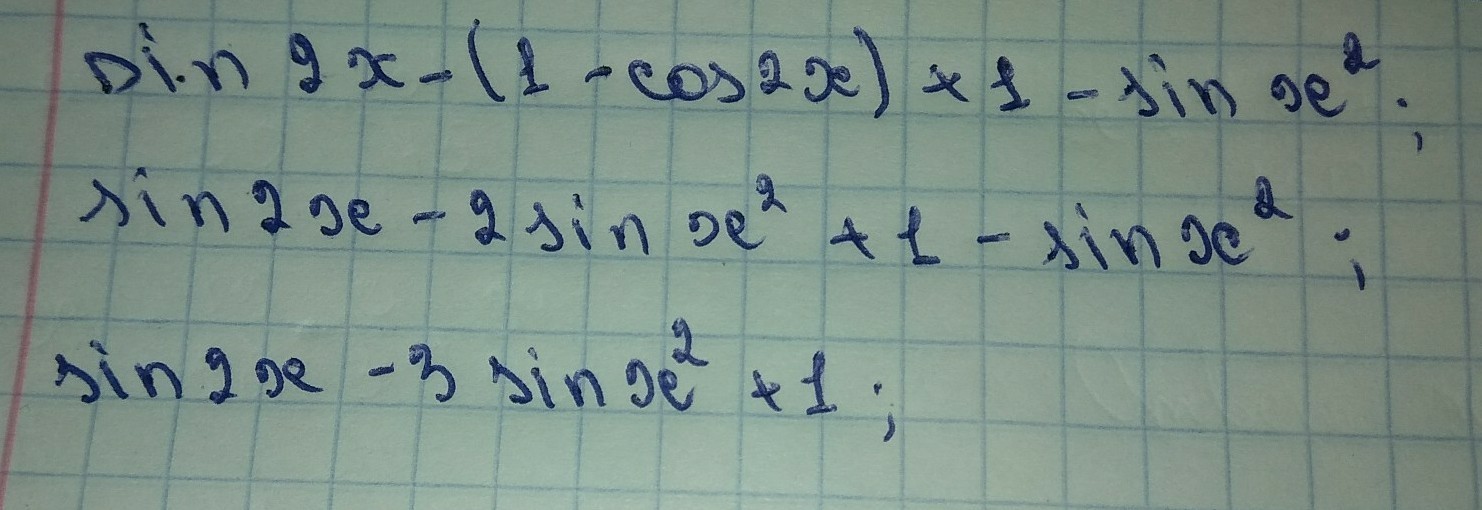 sin 2x - (1 - cos2x) + 1 - sin x²;
sin 2x - 2 sin x² + 1 - sin x²;
sin 2x - 3 sin x² + 1;